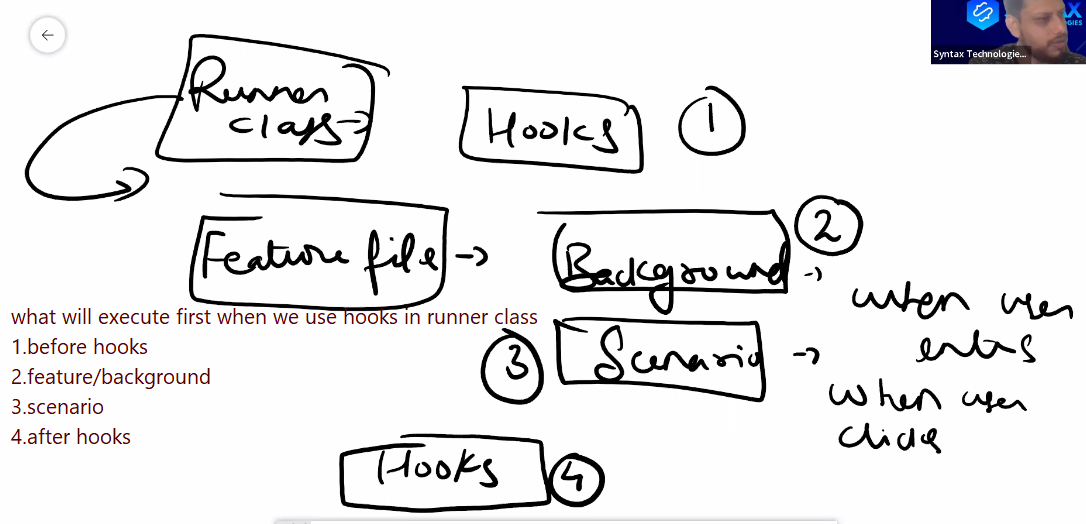 Syntax Technologie...
Runner
class
Hooks
1
Feature file
Background
2
when user
enters
what will execute first when we use hooks in runner class
1.before hooks
2.feature/background
3.scenario
4.after hooks
3
Scenario
when user
clicks
Hooks
4